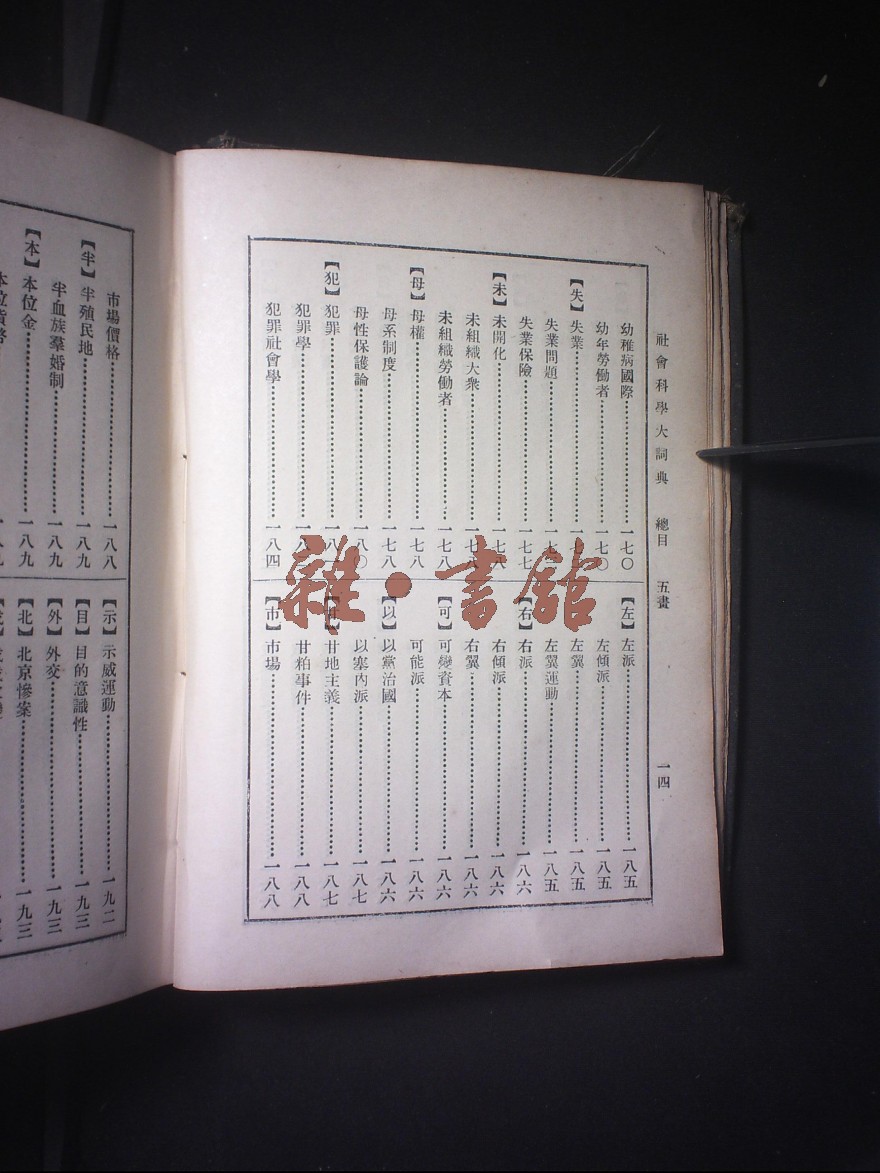 社會科學大詞典 總目 五畫 一四
幼稚病國際一七〇
幼年勞働者一七〇
【失】失業
失業問題
失業保險一七七
【未】未開化一七八
未組織大衆一七八
未組織勞働者一七八
【母】母權一七八
母系制度一七八
母性保護論一八〇
【犯】犯罪一八一
犯罪學
犯罪社會學一八四
【左】左派一八五
左傾派一八五
左翼一八五
左翼運動一八五
【右】右派一八六
右傾派一八六
右翼一八六
【可】可變資本一八六
可能派一八六
【以】以黨治國一八六
以塞內派一八七
【甘】甘地主義一八七
甘粕事件一八八
【市】市場一八八
市場價格一八八
【半】半殖民地一八九
半血族羣婚制一八九
【本】本位金一八九
本位貨幣
【示】示威運動一九二
【目】目的意識性一九三
【外】外交一九三
【北】北京慘案一九三
雜·書館